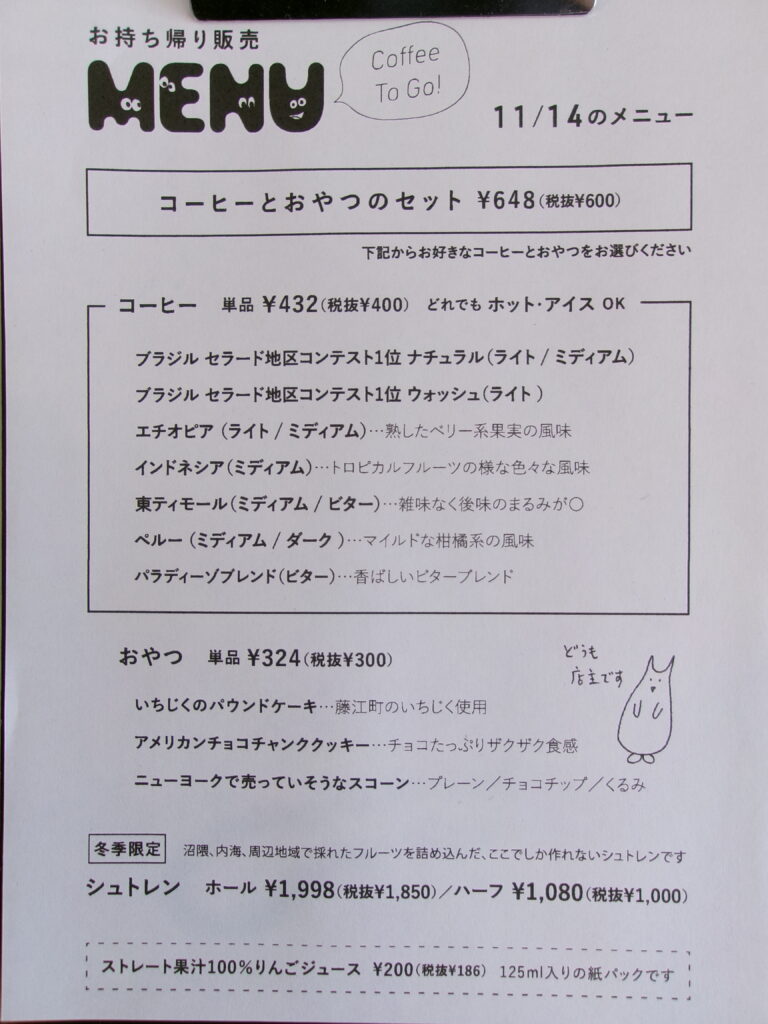 お持ち帰り販売
MENU
Coffee
To Go!
11/14のメニュー
コーヒーとおやつのセット ¥648(税抜¥600)
下記からお好きなコーヒーとおやつをお選びください
コーヒー 単品 ¥432(税抜¥400) どれでも ホット・アイス OK
ブラジル セラード地区コンテスト1位 ナチュラル(ライト / ミディアム)
ブラジル セラード地区コンテスト1位 ウォッシュ(ライト )
エチオピア (ライト / ミディアム)…熟したベリー系果実の風味
インドネシア(ミディアム)…トロピカルフルーツの様な色々な風味
東ティモール(ミディアム / ビター)…雑味なく後味のまるみが〇
ペルー (ミディアム / ダーク )…マイルドな柑橘系の風味
パラディーゾブレンド(ビター)…香ばしいビターブレンド
おやつ 単品 ¥324(税抜¥300)
どうも
店主です
いちじくのパウンドケーキ…藤江町のいちじく使用
アメリカンチョコチャンククッキー…チョコたっぷりザクザク食感
ニューヨークで売っていそうなスコーン…プレーン／チョコチップ／くるみ
冬季限定 沼隈、内海、周辺地域で採れたフルーツを詰め込んだ、ここでしか作れないシュトレンです
シュトレン ホール ¥1,998(税抜¥1,850)／ハーフ ¥1,080(税抜¥1,000)
ストレート果汁100%りんごジュース ¥200(税抜¥186) 125ml入りの紙パックです